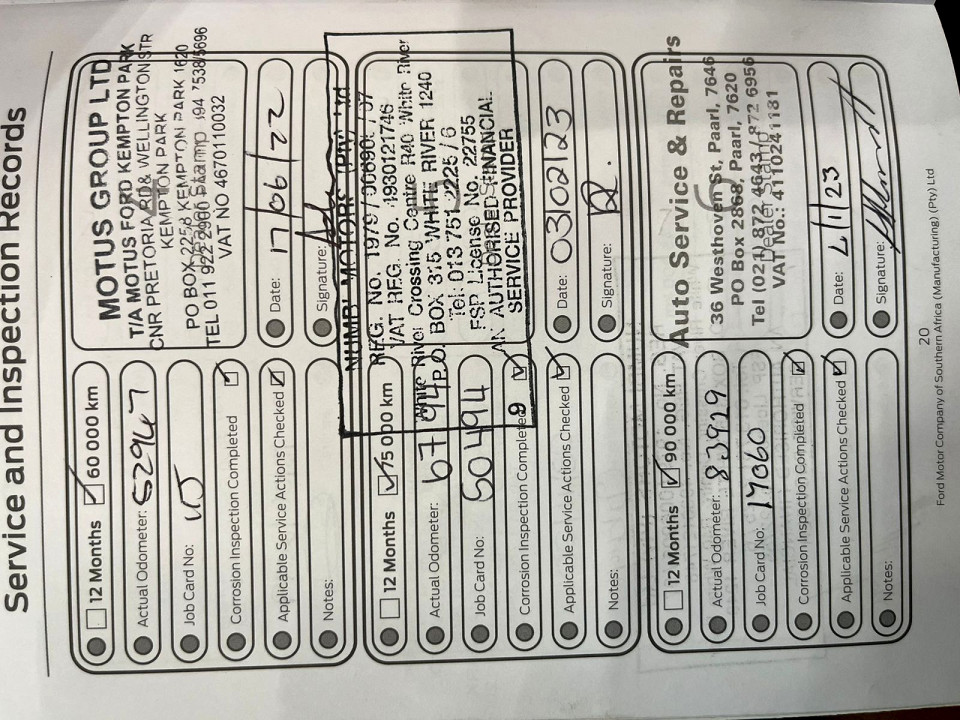 Service and Inspection Records
12 Months ☑ 60 000 km
Actual Odometer: 52967
Job Card No:
Corrosion Inspection Completed ☑
Applicable Service Actions Checked ☑
Notes:
MOTUS GROUP LTD
T/A MOTUS FORD KEMPTON PARK
CNR PRETORIA RD & WELLINGTON STR
KEMPTON PARK
PO BOX 2258 KEMPTON PARK 1620
TEL 011 922 2900
VAT NO 4670110032
Date: 17/06/22
Signature:
12 Months ☑ 75 000 km
Actual Odometer:
Job Card No: 50494
Corrosion Inspection Completed ☑
Applicable Service Actions Checked ☑
Notes:
NUMBI MOTORS (Pty) Ltd
REG. NO. 1979/
VAT REG. No. 4930121746
White River Crossing Centre R40 White River
P.O. BOX 315 WHITE RIVER 1240
Tel: 013 751 2225 / 6
FSP License No. 22755
AN AUTHORISED FINANCIAL
SERVICE PROVIDER
9
Date: 03/02/23
Signature:
12 Months ☑ 90 000 km
Actual Odometer: 83929
Job Card No: 17060
Corrosion Inspection Completed ☑
Applicable Service Actions Checked ☑
Notes:
Auto Service & Repairs
36 Westhoven St, Paarl, 7646
PO Box 2868, Paarl, 7620
Tel (021) 872 4643 / 872 6956
Dealer Stamp
VAT No.: 4110241181
Date: 2/11/23
Signature:
20
Ford Motor Company of Southern Africa (Manufacturing) (Pty) Ltd